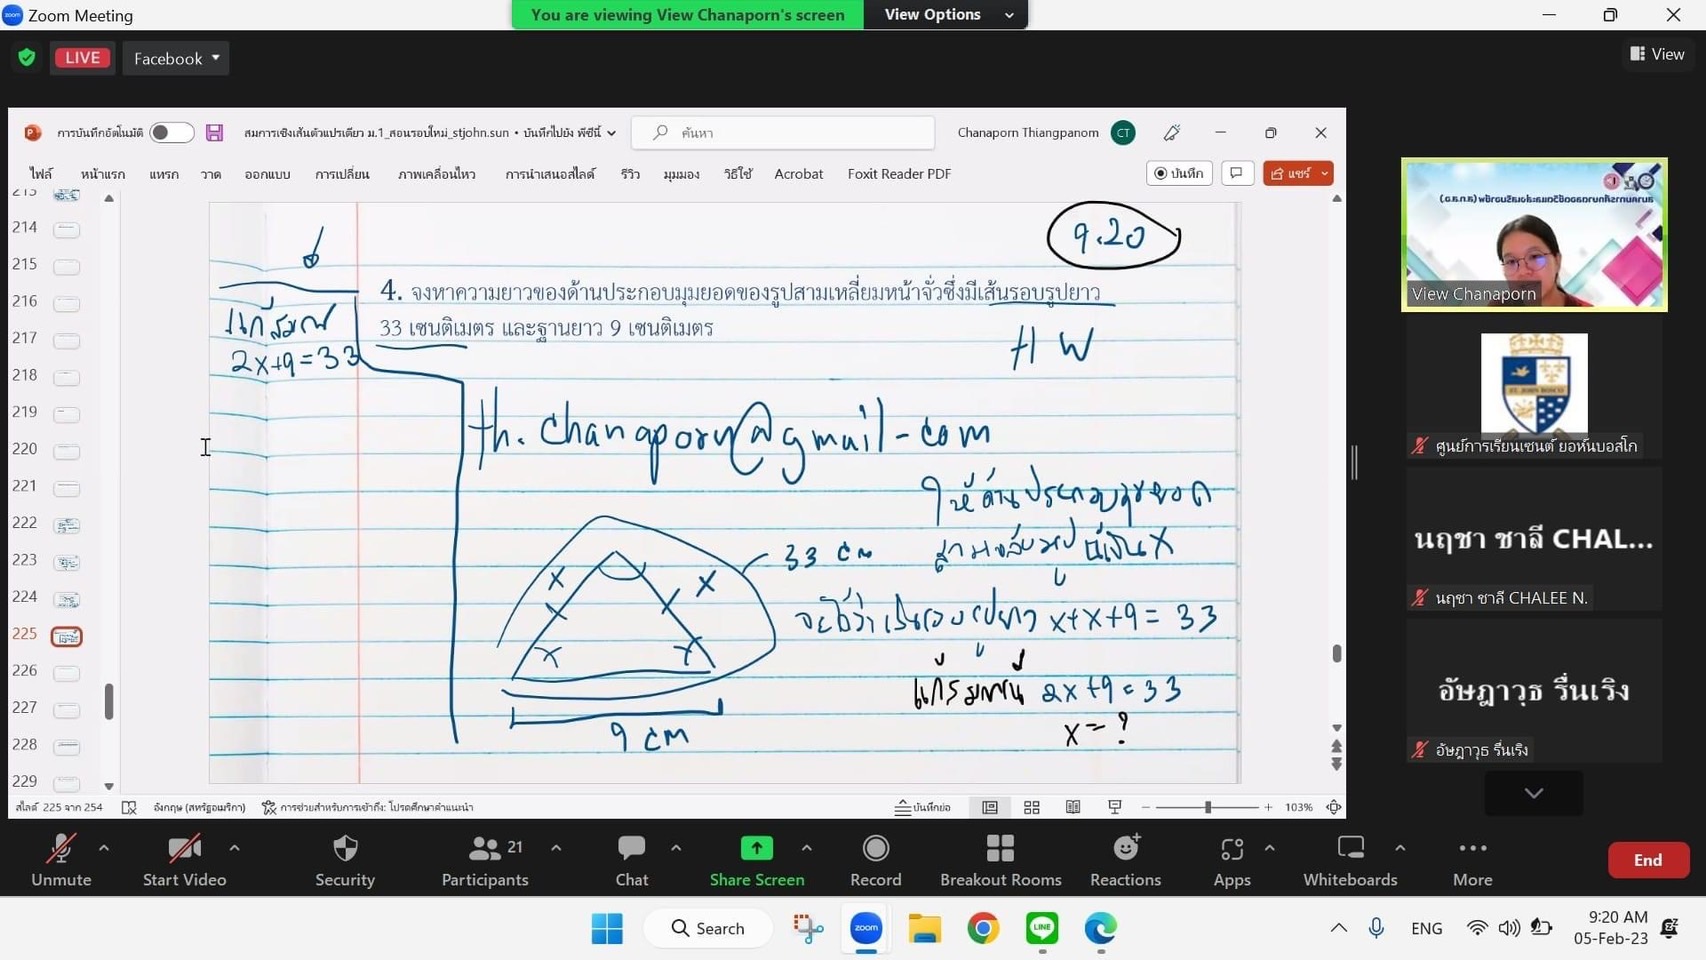 Zoom Meeting
You are viewing View Chanaporn's screen
View Options
LIVE
Facebook
View
การบันทึกอัตโนมัติ
สมการเชิงเส้นตัวแปรเดียว ม.1_สอนรอบใหม่_stjohn.sun • บันทึกไปยัง พีซีนี้
ค้นหา
Chanaporn Thiangpanom
CT
ไฟล์ หน้าแรก แทรก วาด ออกแบบ การเปลี่ยน ภาพเคลื่อนไหว การนำเสนอสไลด์ รีวิว มุมมอง วิธีใช้ Acrobat Foxit Reader PDF
บันทึก
แชร์
213
214
215
216
217
218
219
220
221
222
223
224
225
226
227
228
229
9.20
4. จงหาความยาวของด้านประกอบมุมยอดของรูปสามเหลี่ยมหน้าจั่วซึ่งมีเส้นรอบรูปยาว
33 เซนติเมตร และฐานยาว 9 เซนติเมตร
HW
แก้สมการ
2x+9=33
th.chanaporn@gmail.com
ให้ด้านประกอบมุมยอด
สามเหลี่ยมรูปนี้เป็น x
33 cm
x x
จะได้ว่าเส้นรอบรูปยาว x+x+9 = 33
แก้สมการ 2x+9=33
x = ?
9 cm
สไลด์ 225 จาก 254
อังกฤษ (สหรัฐอเมริกา)
การช่วยสำหรับการเข้าถึง: โปรดศึกษาคำแนะนำ
บันทึกย่อ
103%
View Chanaporn
ศูนย์การเรียนเซนต์ ยอห์นบอสโก
นฤชา ชาลี CHAL...
นฤชา ชาลี CHALEE N.
อัษฎาวุธ รื่นเริง
อัษฎาวุธ รื่นเริง
Unmute
Start Video
Security
21
Participants
Chat
Share Screen
Record
Breakout Rooms
Reactions
Apps
Whiteboards
More
End
Search
zoom
LINE
ENG
9:20 AM
05-Feb-23